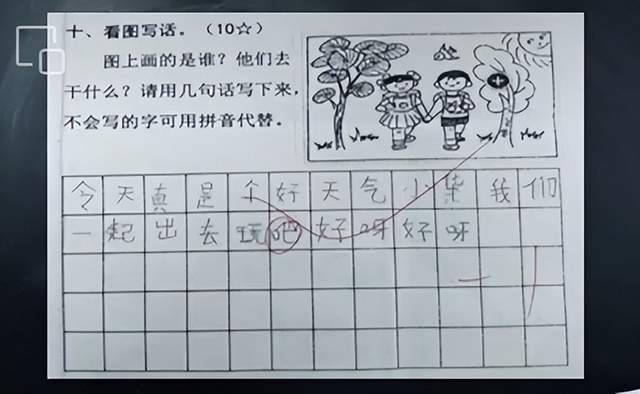 十、看图写话。（10☆）
图上画的是谁？他们去
干什么？请用几句话写下来，
不会写的字可用拼音代替。
今天真是个好天气小柴我们
一起出去玩吧好呀好呀